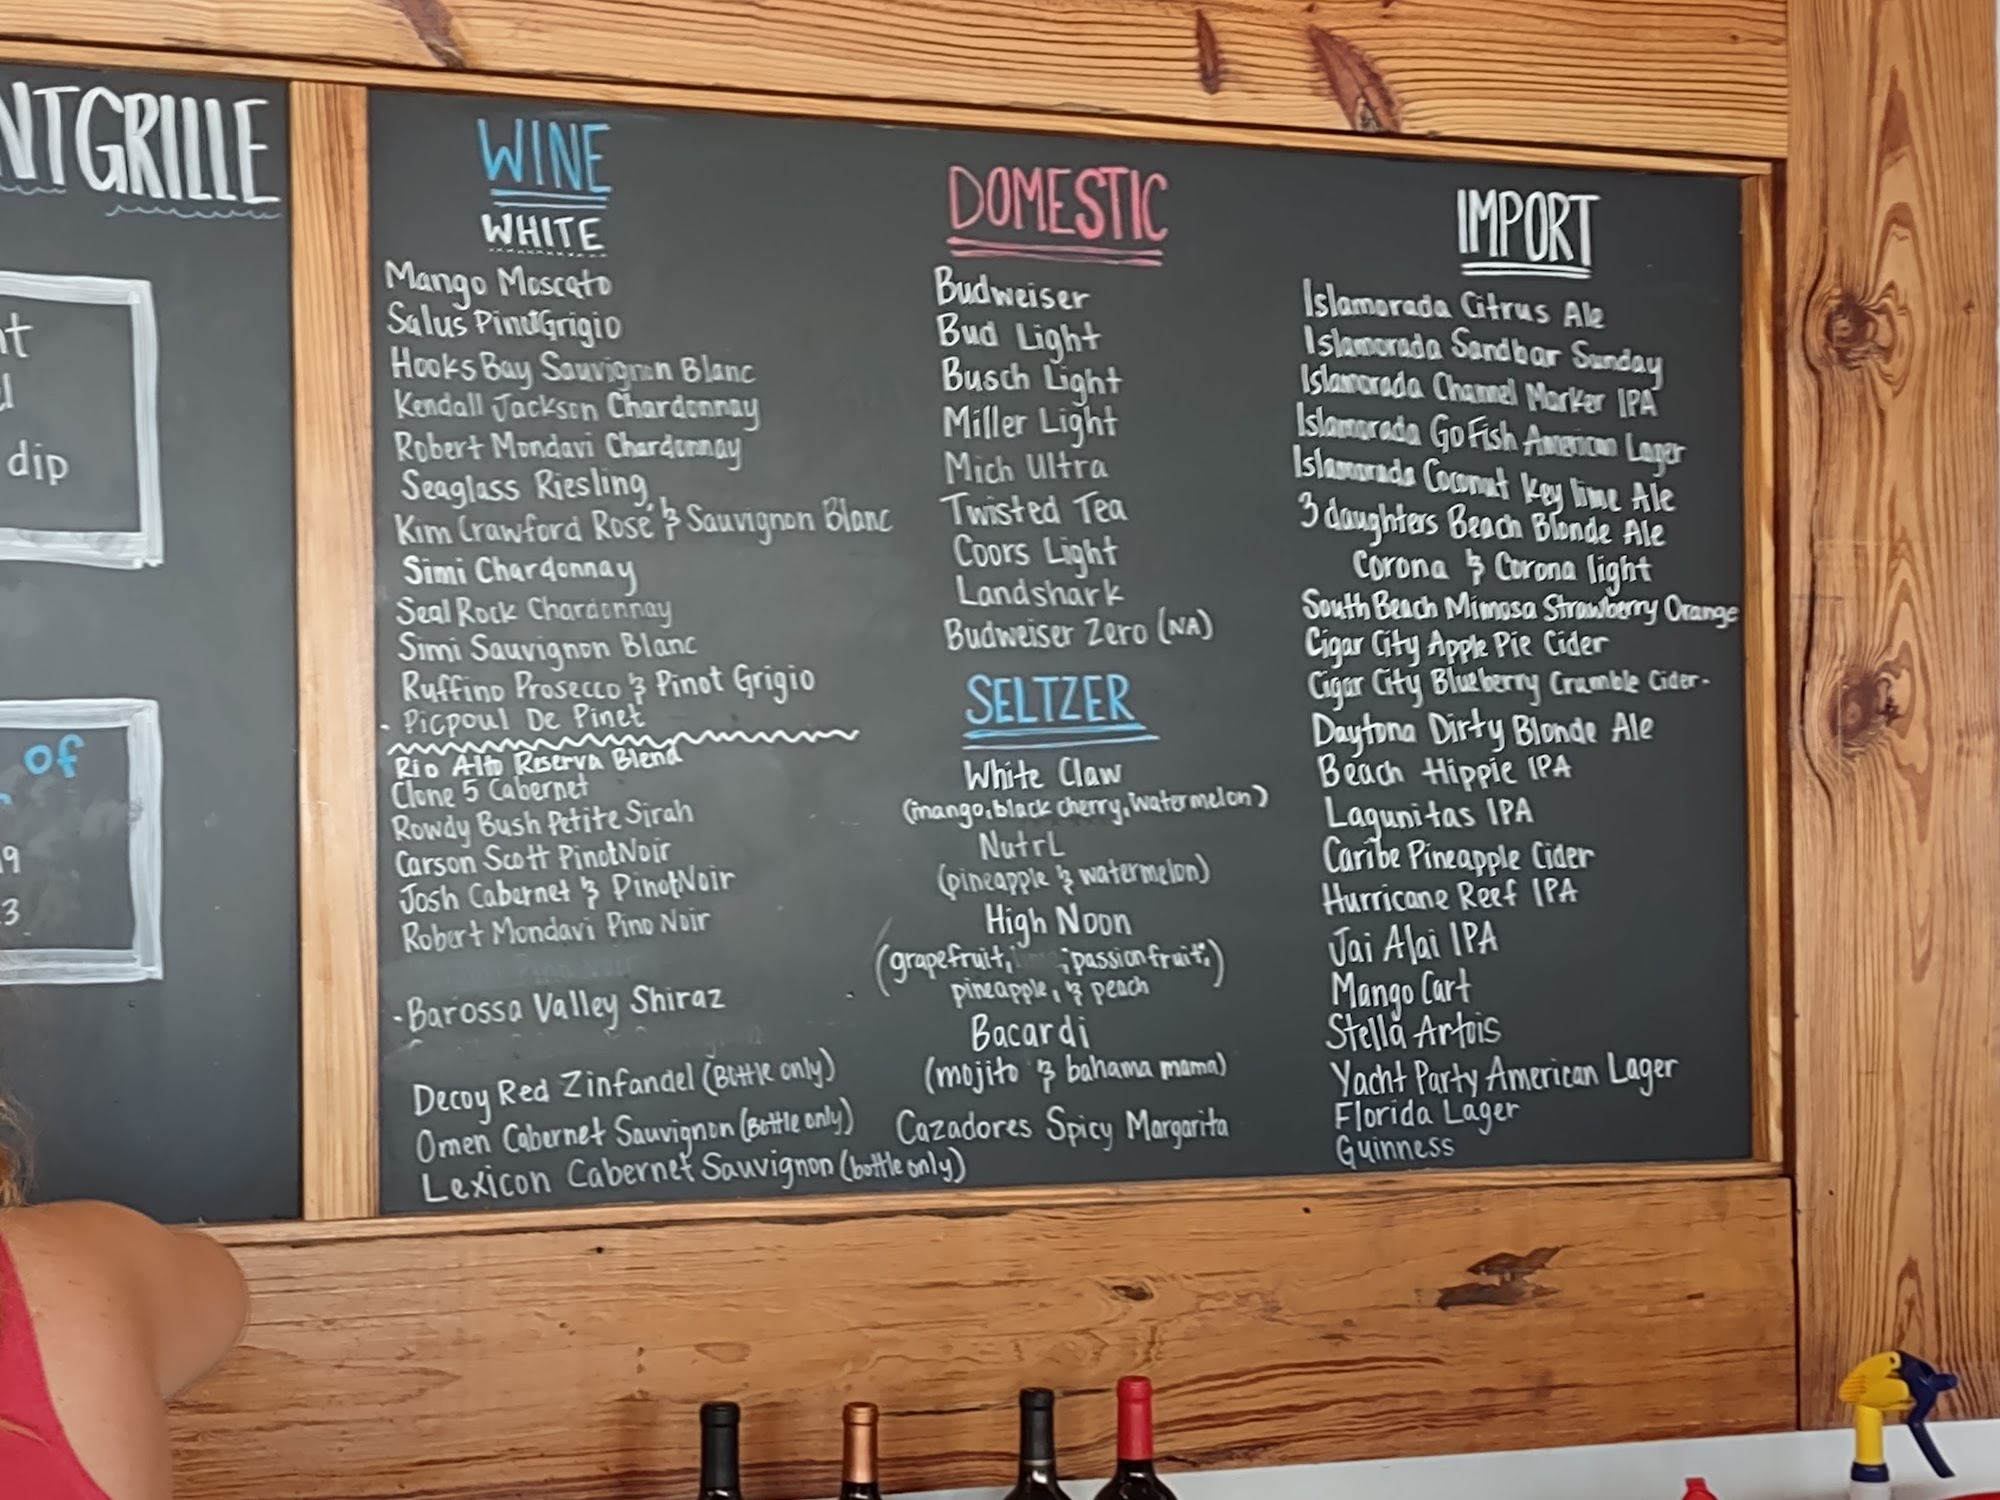 NTGRILLE
nt
el
dip
of
19
3
WINE
WHITE
Mango Moscato
Salus Pinot Grigio
Hooks Bay Sauvignon Blanc
Kendall Jackson Chardonnay
Robert Mondavi Chardonnay
Seaglass Riesling
Kim Crawford Rosé & Sauvignon Blanc
Simi Chardonnay
Seal Rock Chardonnay
Simi Sauvignon Blanc
Ruffino Prosecco & Pinot Grigio
- Picpoul De Pinet
Rio Alto Reserva Blend
Clone 5 Cabernet
Rowdy Bush Petite Sirah
Carson Scott Pinot Noir
Josh Cabernet & Pinot Noir
Robert Mondavi Pino Noir
- Barossa Valley Shiraz
Decoy Red Zinfandel (Bottle only)
Omen Cabernet Sauvignon (Bottle only)
Lexicon Cabernet Sauvignon (bottle only)
DOMESTIC
Budweiser
Bud Light
Busch Light
Miller Light
Mich Ultra
Twisted Tea
Coors Light
Landshark
Budweiser Zero (NA)
SELTZER
White Claw
(mango, black cherry, watermelon)
NutrL
(pineapple & watermelon)
High Noon
(grapefruit, , passionfruit,
pineapple, & peach)
Bacardi
(mojito & bahama mama)
Cazadores Spicy Margarita
IMPORT
Islamorada Citrus Ale
Islamorada Sandbar Sunday
Islamorada Channel Marker IPA
Islamorada Go Fish American Lager
Islamorada Coconut Key lime Ale
3 daughters Beach Blonde Ale
Corona & Corona light
South Beach Mimosa Strawberry Orange
Cigar City Apple Pie Cider
Cigar City Blueberry Crumble Cider -
Daytona Dirty Blonde Ale
Beach Hippie IPA
Lagunitas IPA
Caribe Pineapple Cider
Hurricane Reef IPA
Jai Alai IPA
Mango Cart
Stella Artois
Yacht Party American Lager
Florida Lager
Guinness